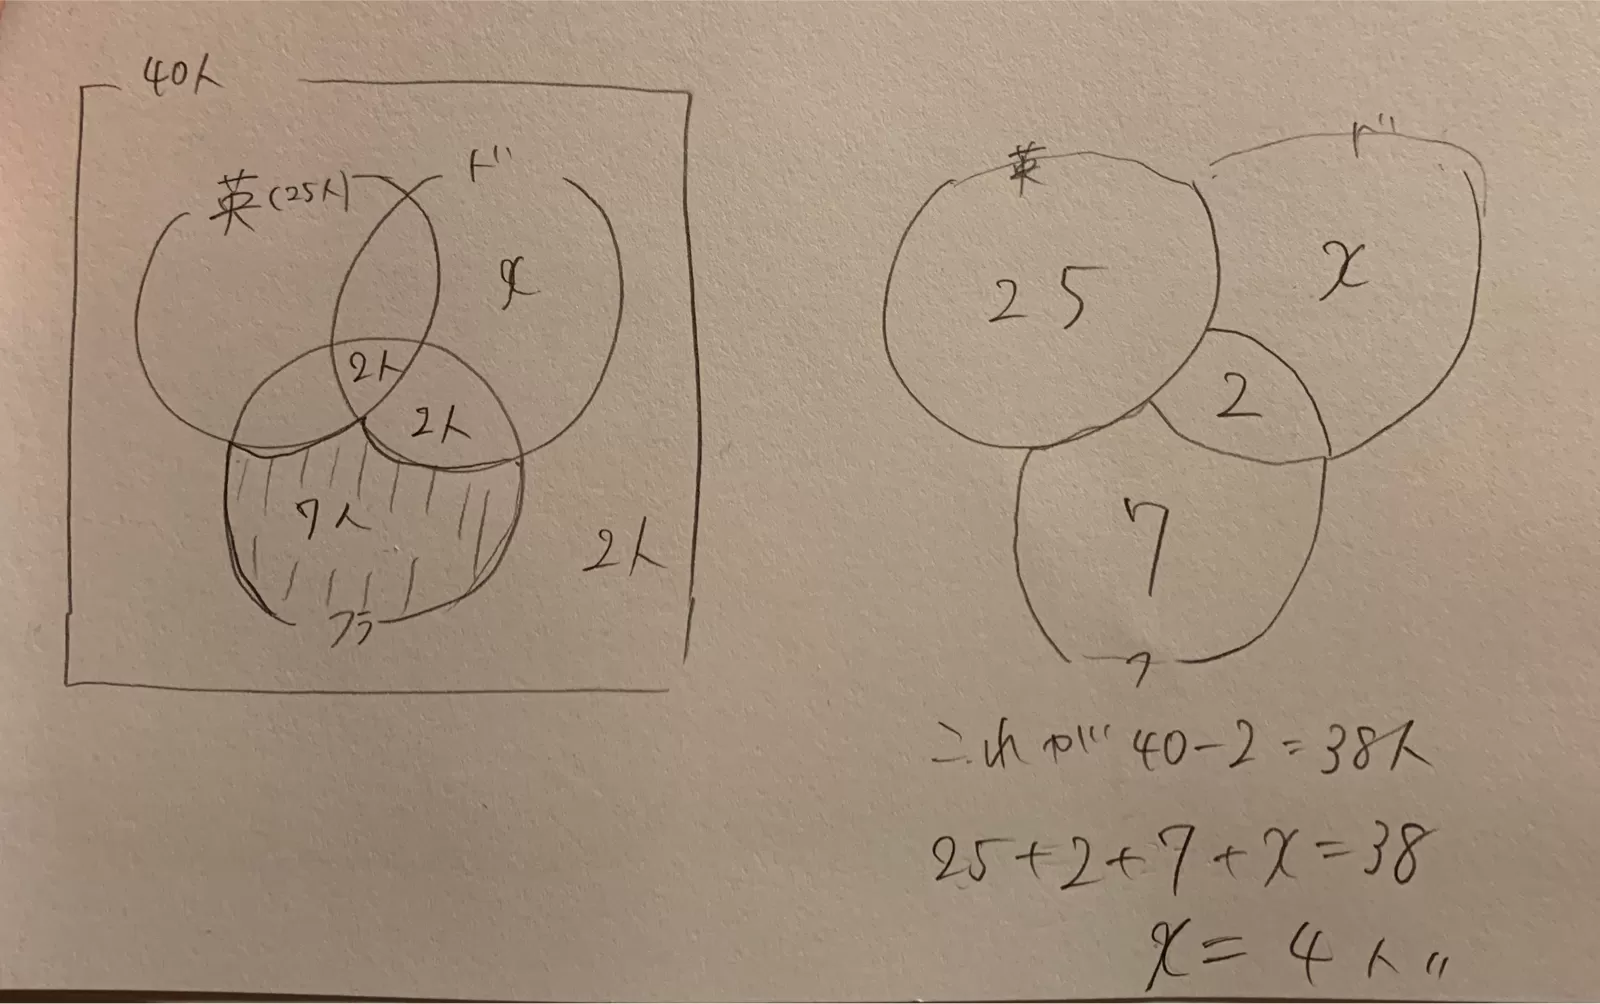 40人
英(25人)
ド
x
2人
2人
7人
2人
フラ
英
ド
25
x
2
7
フ
これが 40-2=38人
25+2+7+x=38
x=4人〃